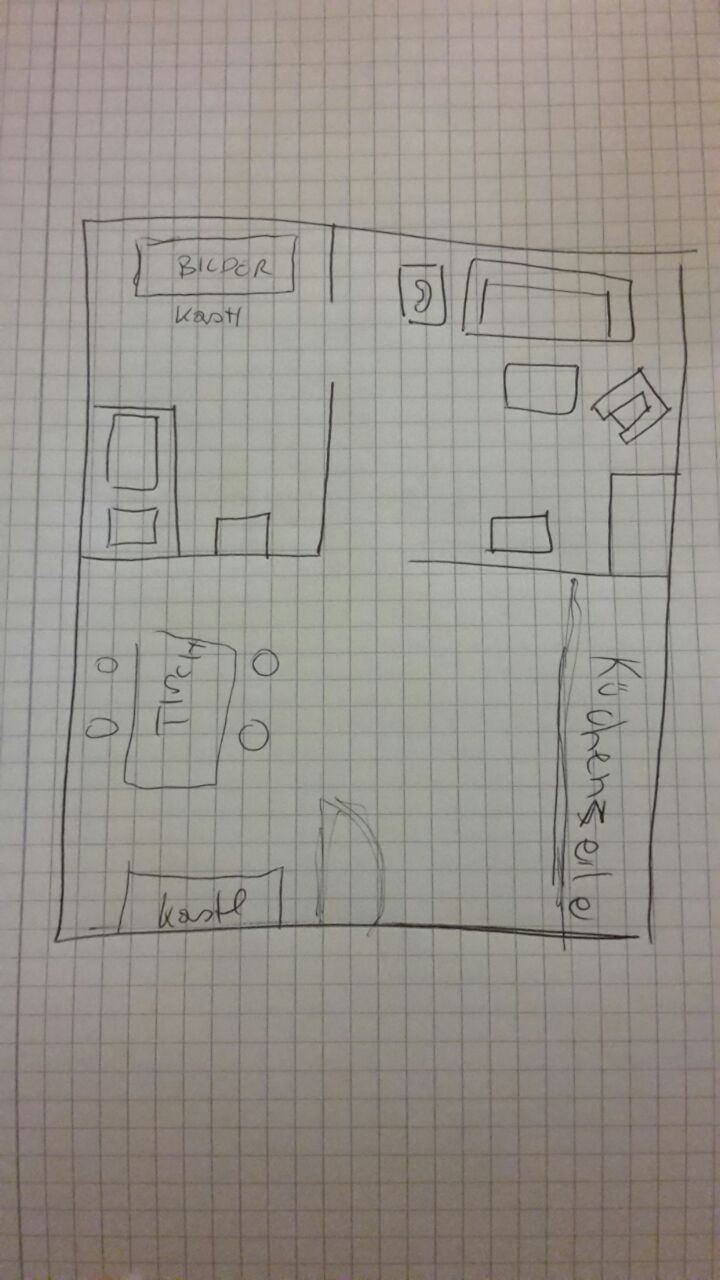 BILDER
Kastl
Tisch
Küchenzeile
Kastl